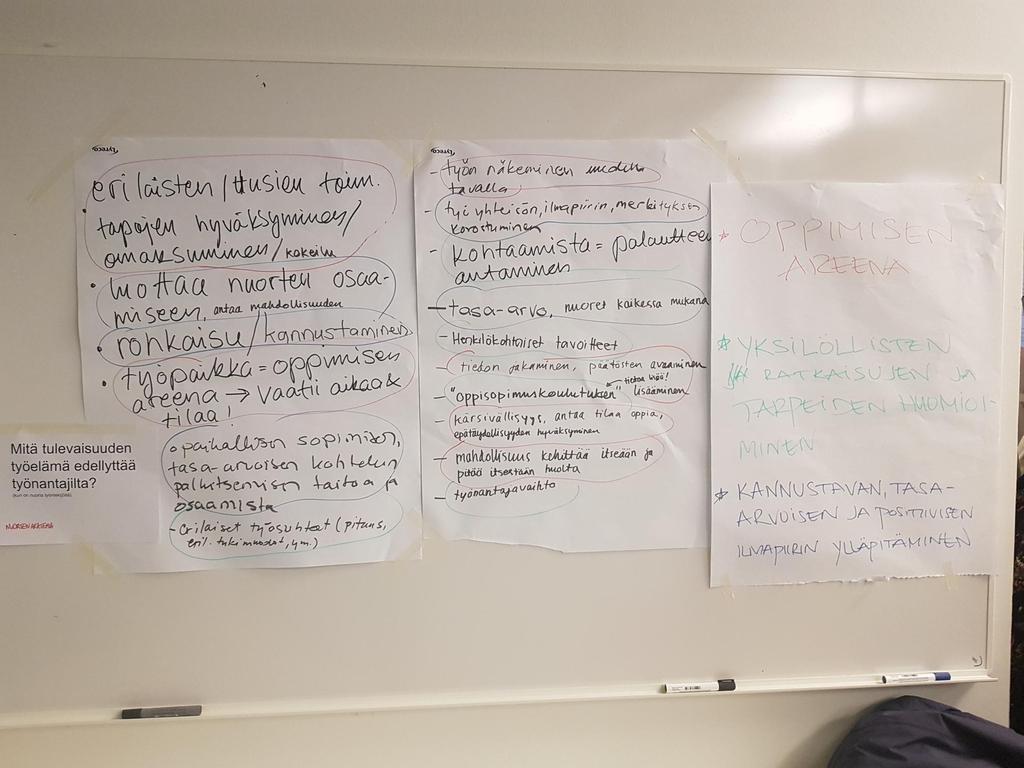 erilaisten / uusien toim.
tapojen hyväksyminen /
omaksuminen / kokeilu
• luottaa nuorten osaa-
miseen, antaa mahdollisuuden
• rohkaisu / kannustaminen
• työpaikka = oppimisen
areena → vaatii aikaa &
tilaa!
paikallisen sopimisen,
tasa-arvoisen kohtelun
palkitsemisen taitoa ja
osaamista
- erilaiset työsuhteet (pituus,
eril. tukimuodot, ym.)
Mitä tulevaisuuden
työelämä edellyttää
työnantajilta?
(kun on nuoria työntekijöitä)
- työn näkeminen uudella
tavalla
- työyhteisön, ilmapiirin, merkityksen
korostuminen
- kohtaamista = palautteen
antaminen
- tasa-arvo, nuoret kaikessa mukana
- Henkilökohtaiset tavoitteet
- tiedon jakaminen, päätösten avaaminen
← tietoa lisää!
- "oppisopimuskoulutuksen" lisääminen
- kärsivällisyys, antaa tilaa oppia,
epätäydellisyyden hyväksyminen
- mahdollisuus kehittää itseään ja
pitää itsestään huolta
- työnantajavaihto
* OPPIMISEN
AREENA
* YKSILÖLLISTEN
RATKAISUJEN JA
TARPEIDEN HUOMIOI-
MINEN
* KANNUSTAVAN, TASA-
ARVOISEN JA POSITIIVISEN
ILMAPIIRIN YLLÄPITÄMINEN